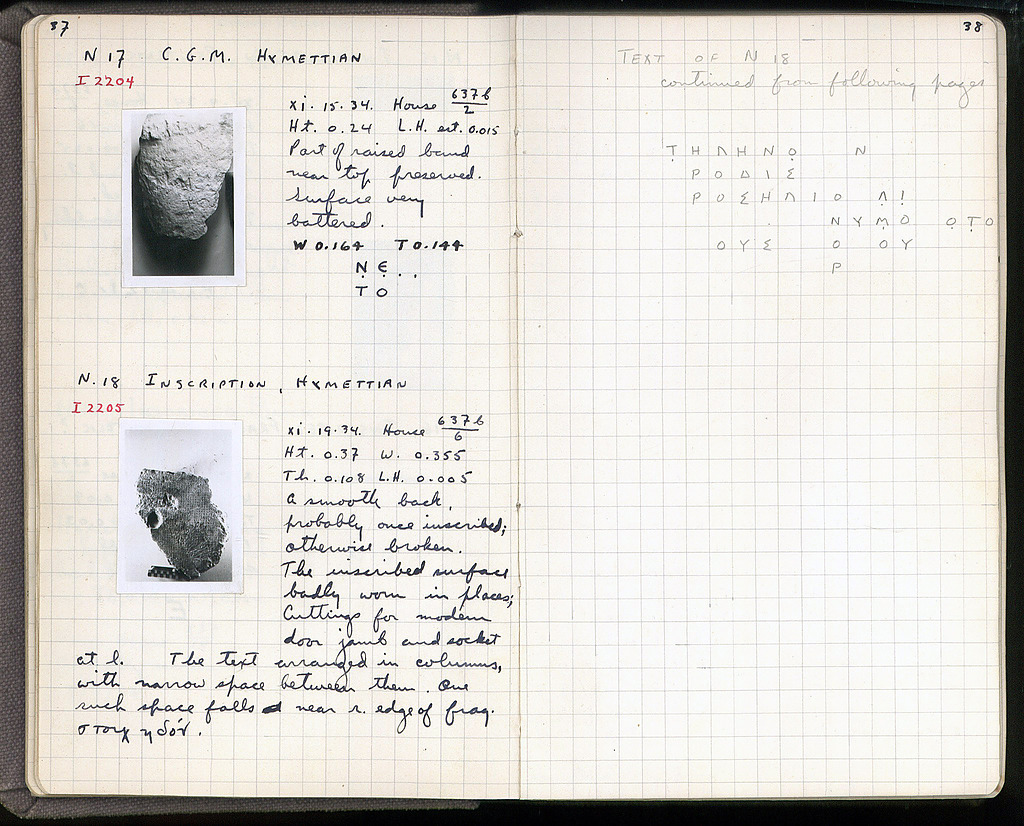 37
N 17 C.G.M. HYMETTIAN
I 2204
xi. 15. 34. House 637b/2
Ht. 0.24 L.H. est. 0.015
Part of raised band
near top preserved.
Surface very
battered.
W 0.164 T 0.144
Ṇ Ẹ . .
Τ Ο
N. 18 INSCRIPTION, HYMETTIAN
I 2205
xi. 19. 34. House 637b/6
Ht. 0.37 W. 0.355
Th. 0.108 L.H. 0.005
A smooth back,
probably once inscribed;
otherwise broken.
The inscribed surface
badly worn in places;
Cuttings for modern
door jamb and socket
at l. The text arranged in columns,
with narrow space between them. One
such space falls near r. edge of frag.
στοιχηδόν.
38
TEXT OF N 18
continued from following pages
Τ̣ Η Λ Η Ν Ο̣ Ν
Ρ Ο Δ Ι Σ
Ρ Ο Σ Η Λ Ι Ο Λ !
Ν Υ Μ Ο Ο̣ Τ̣ Ο
Ο Υ Σ Ο Ο Υ
Ρ